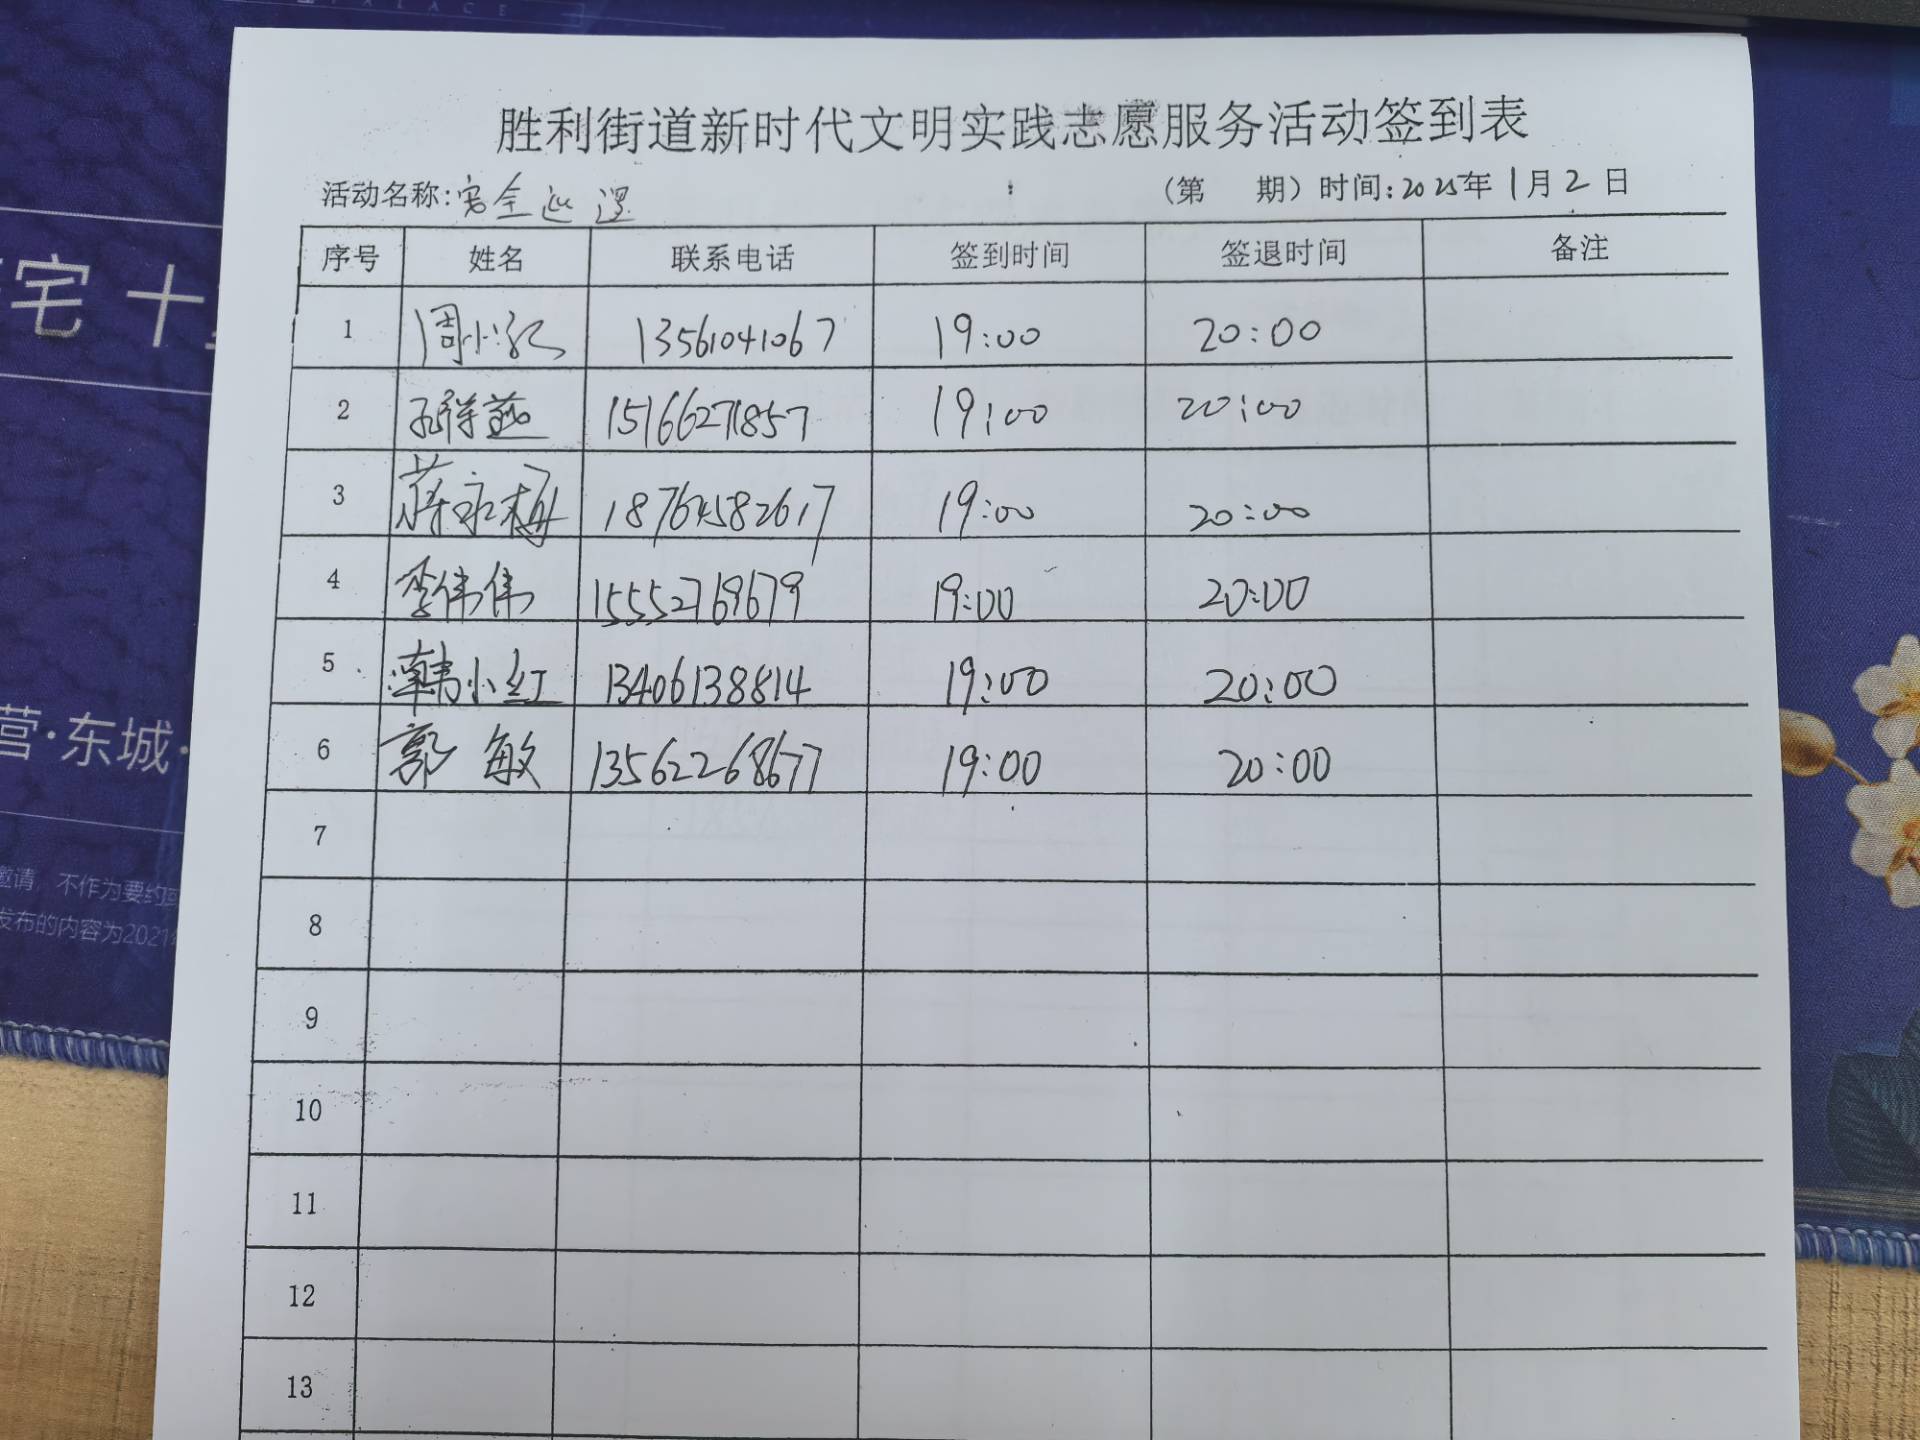 PALACE
宅 十
营·东城·
邀请，不作为要约或
发布的内容为2021
胜利街道新时代文明实践志愿服务活动签到表
活动名称:安全巡逻 （第 期）时间:2025年1月2日
序号 姓名 联系电话 签到时间 签退时间 备注
1 周小 13561041067 19:00 20:00
2 孔祥燕 15166271857 19:00 20:00
3 蒋永梅 18764582617 19:00 20:00
4 李伟伟 15552769679 19:00 20:00
5 韩小红 13406138814 19:00 20:00
6 郭敏 13562268677 19:00 20:00
7
8
9
10
11
12
13